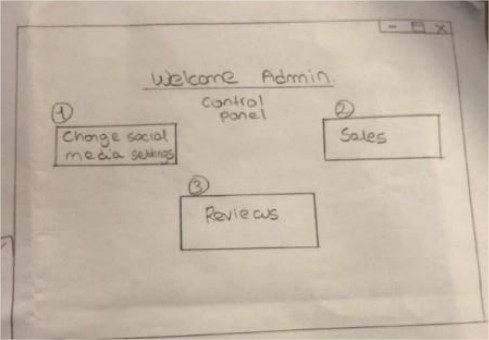 Welcome Admin.
Control
panel
1
Change social
media settings
2
Sales
3
Reviews